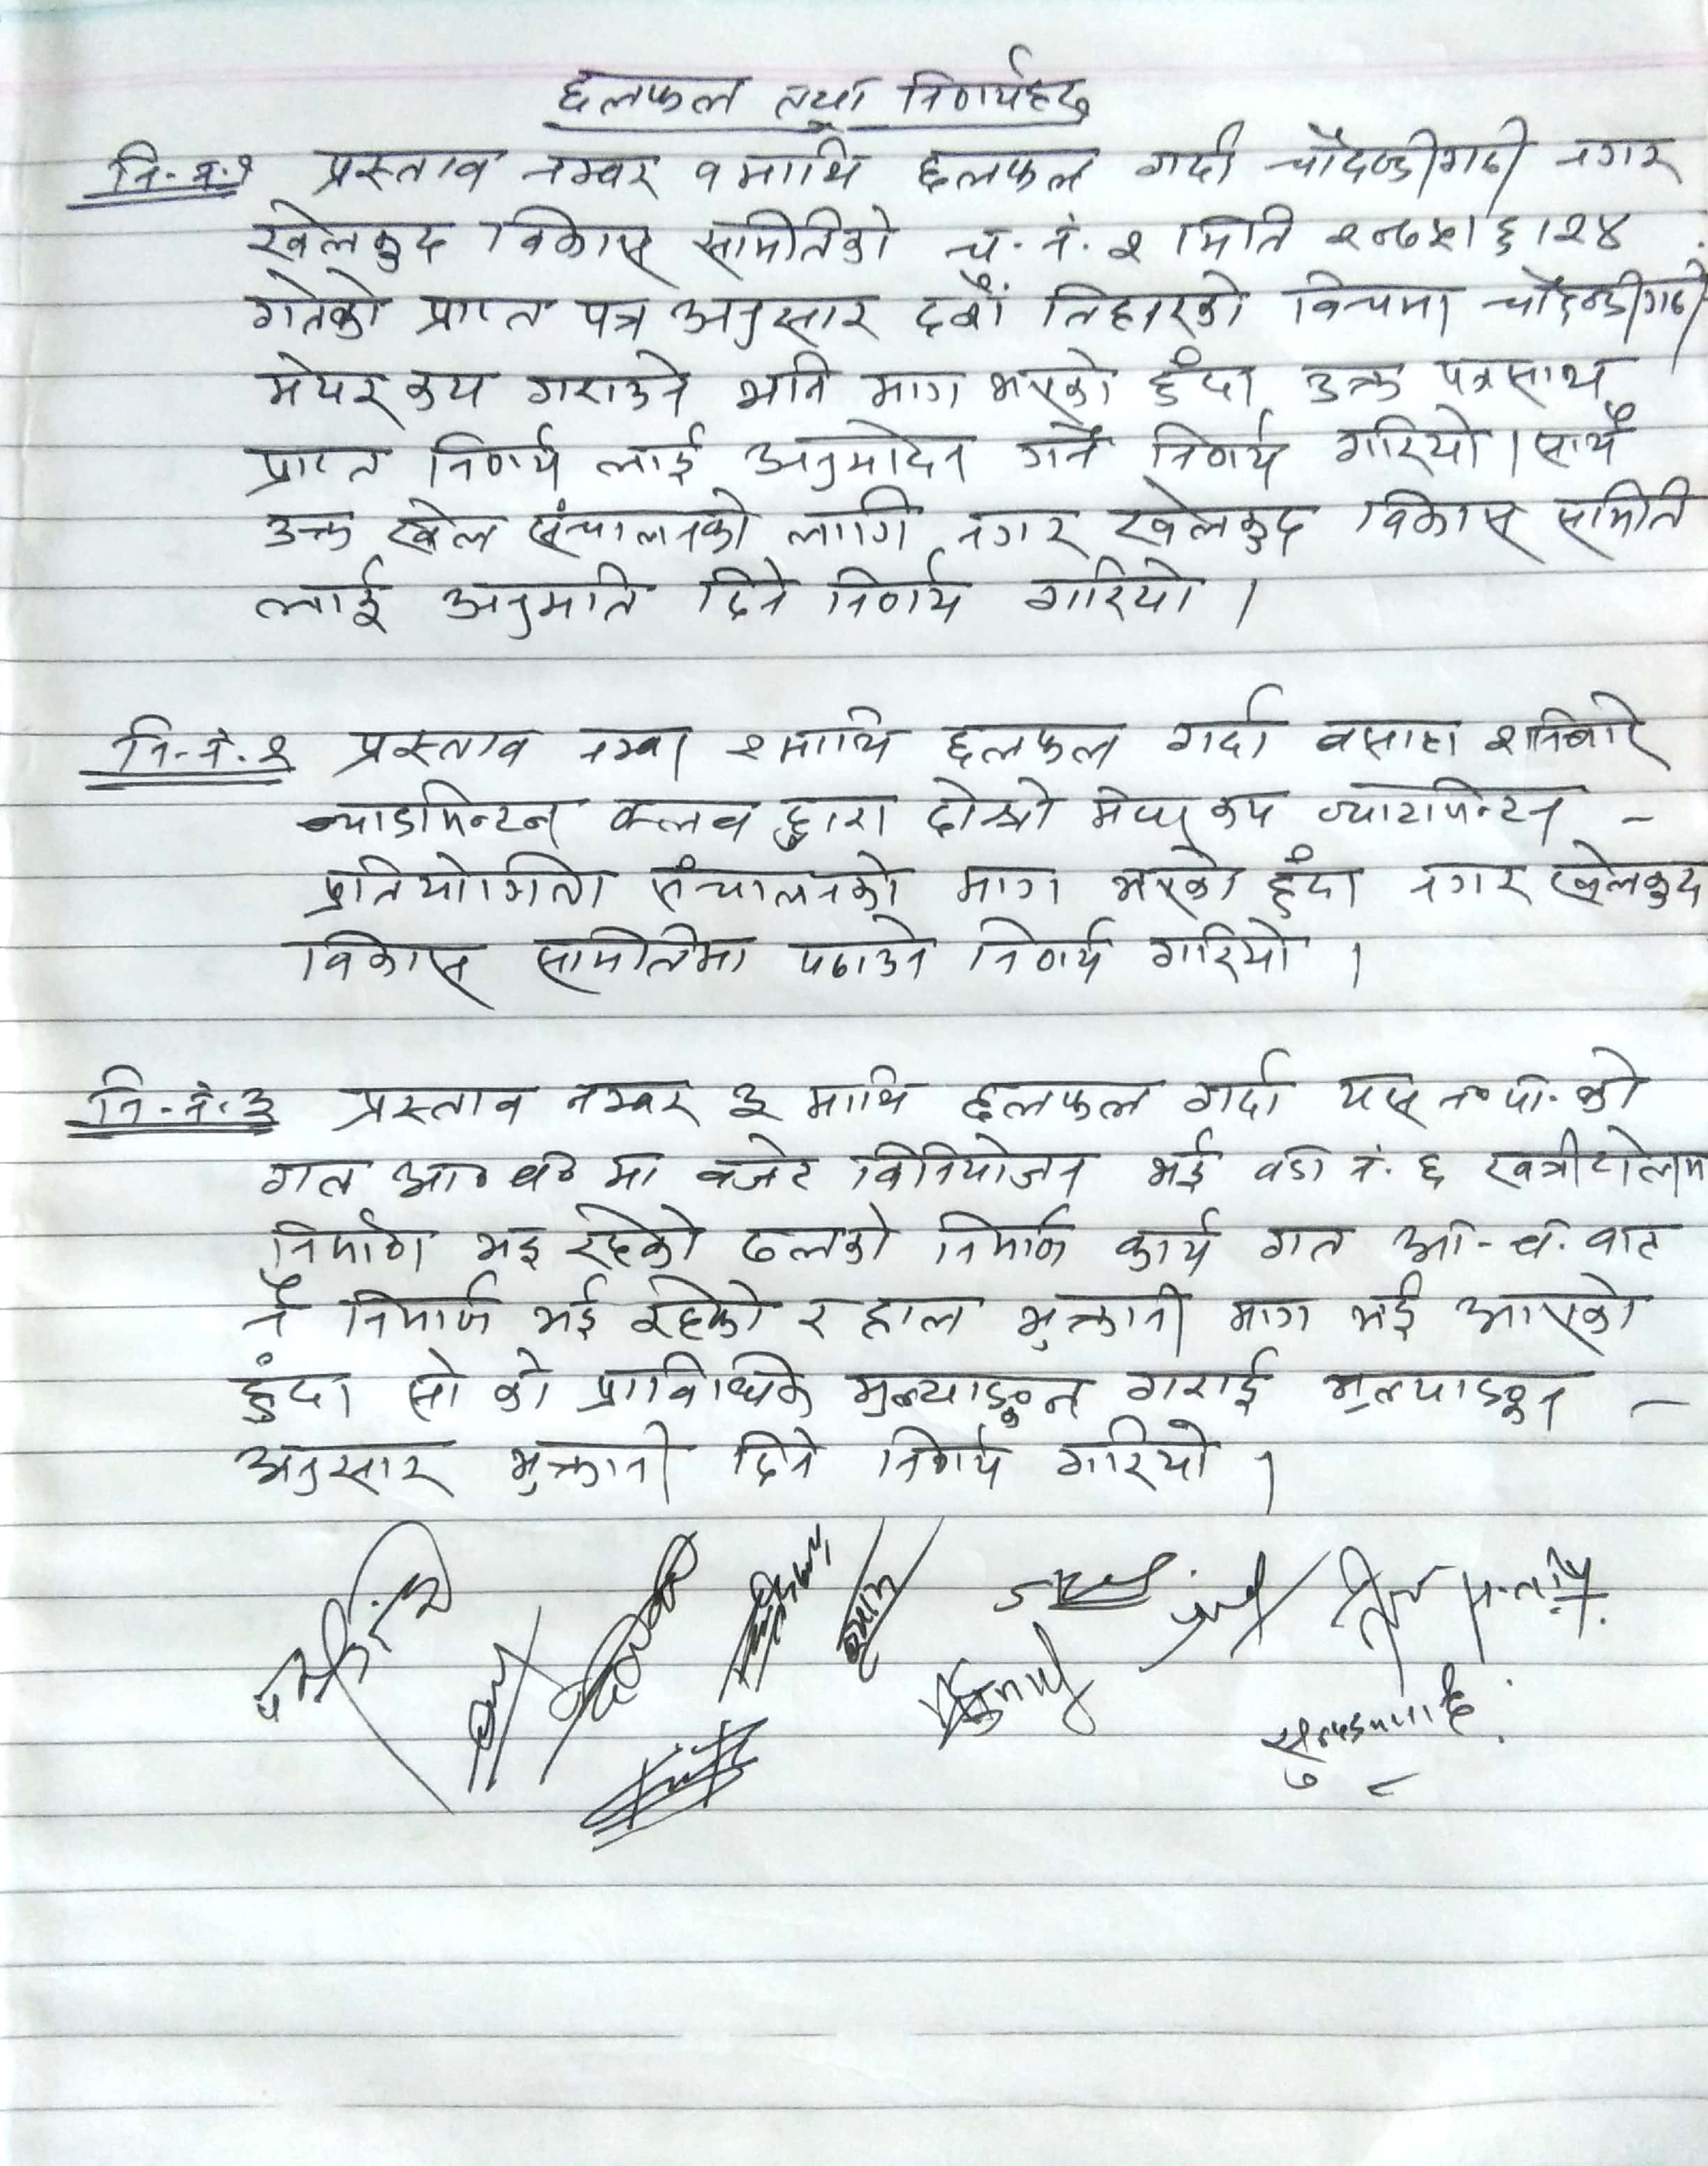 छलफल तथा निर्णयहरु
नि.नं.१ प्रस्ताव नम्वर १ माथि छलफल गर्दा चौदण्डीगढी नगर
खेलकुद विकास समितिको च.नं. २ मिति २०७५।६।२४
गतेको प्राप्त पत्र अनुसार दशैं तिहारको विचमा चौदण्डीगढी
मेयर कप गराउने भनि माग भएको हुँदा उक्त पत्रसाथ
प्राप्त निर्णय लाई अनुमोदन गर्ने निर्णय गरियो । साथै
उक्त खेल संचालनको लागि नगर खेलकुद विकास समिति
लाई अनुमति दिने निर्णय गरियो ।
नि.नं.२ प्रस्ताव नम्वर २ माथि छलफल गर्दा वसाहा शनिबारे
ब्याडमिन्टन क्लव द्वारा दोस्रो मेयर कप व्याटमिन्टन -
प्रतियोगिता संचालनको माग भएको हुँदा नगर खेलकुद
विकास समितिमा पठाउने निर्णय गरियो ।
नि.नं.३ प्रस्ताव नम्वर ३ माथि छलफल गर्दा यस न.पा.को
गत आ०व० मा वजेट विनियोजन भई वडा नं. ६ खत्रीटोलमा
निर्माण भइ रहेको ढलको निर्माण कार्य गत आ.व. वाट
नै निर्माण भई रहेको र हाल भुक्तानी माग भई आएको
हुंदा सो को प्राविधिक मुल्याङ्कन गराई मुल्याङ्कन -
अनुसार भुक्तानी दिने निर्णय गरियो ।